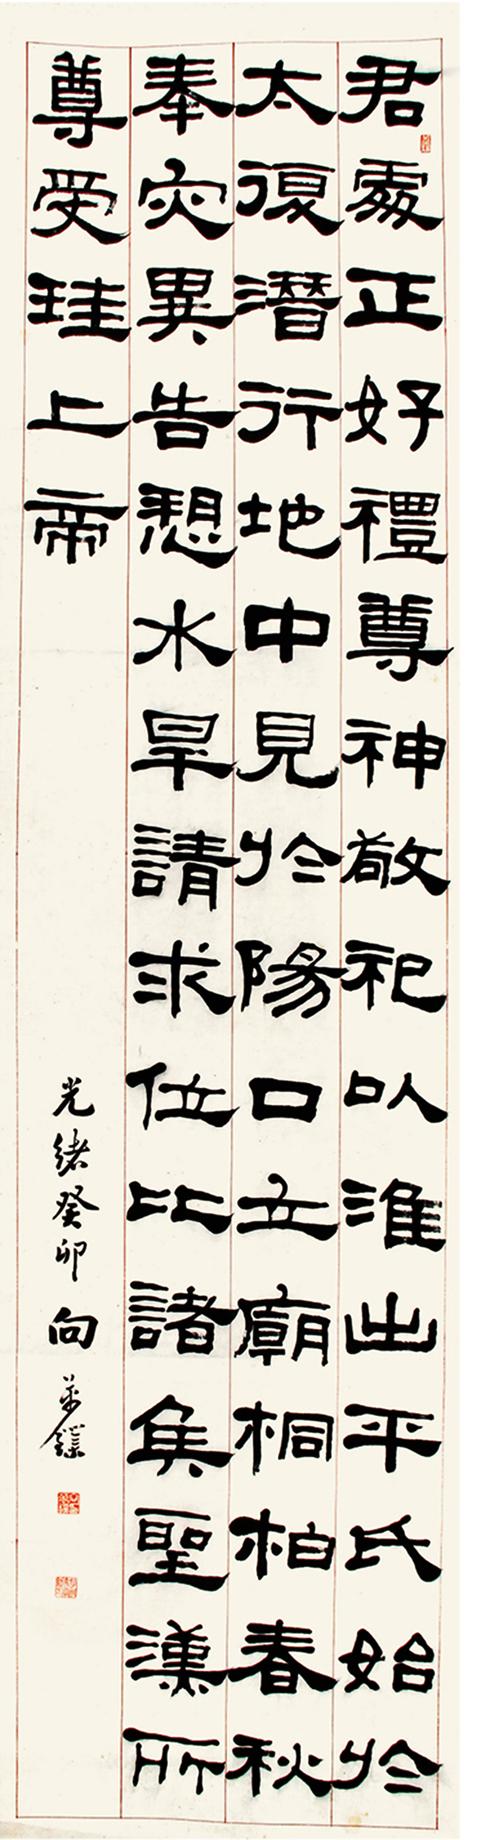 君處正好禮尊神敬祀以淮出平氏始於
太復潛行地中見於陽口立廟桐柏春秋
奉灾異告愬水旱請求位比諸侯聖漢所
尊受珪上帝
光緒癸卯向萬鑅